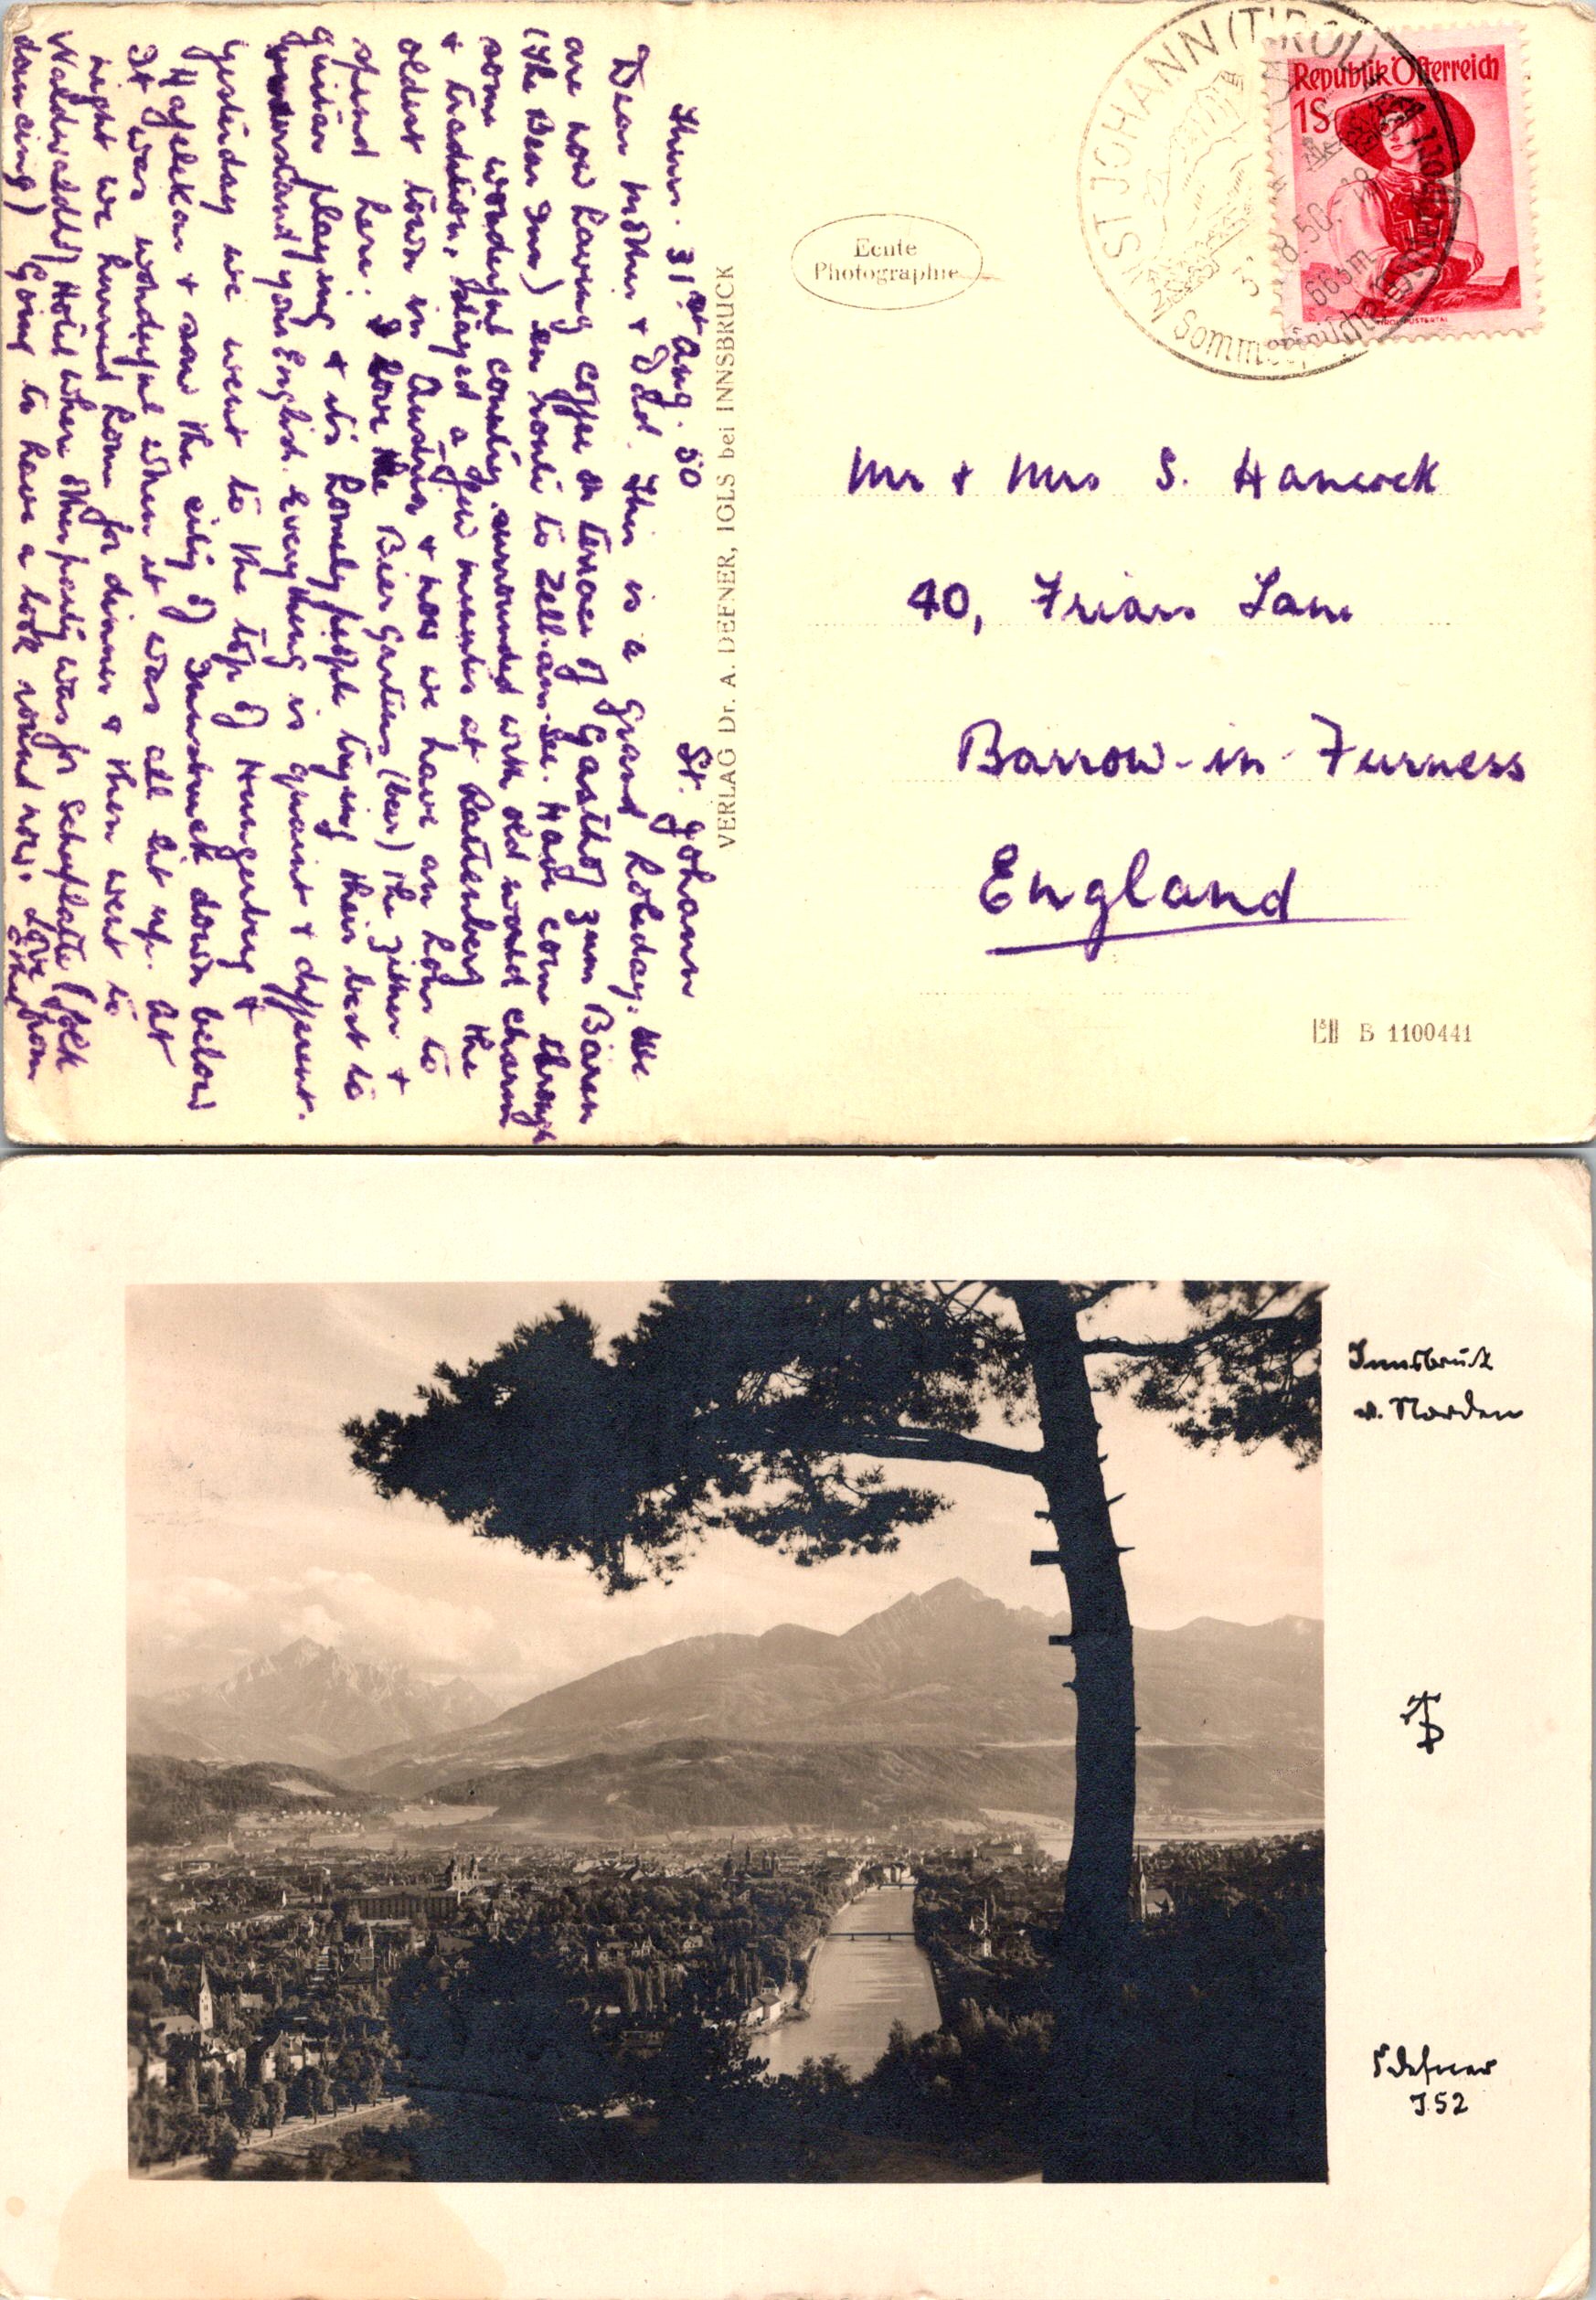 Thurs. 31st Aug. 50
St. Johann
Dear Mother & Dad. This is a grand holiday. We
are now having coffee on terrace of Gasthof zum Bären
(the Bear Inn) en route to Zell-am-See. Have come through
some wonderful country surrounded with old world charm
& tradition, stayed a few minutes at Rattenberg the
oldest town in Austria & now we have an hour to
spend here. I love the Bier Gartens (beer) the zither &
guitar playing & its homely people trying their best to
understand your English. Everything is quaint & different.
Yesterday we went to the top of Hungerberg &
Hafelekar & saw the city of Innsbruck down below
It was wonderful when it was all lit up. At
night we hurried home for dinner & then went to
Hotel where other party was for Schuplatte (folk
dancing) Going to have a look round now. Love from
VERLAG Dr. A. DEFNER, IGLS bei INNSBRUCK
Echte
Photographie
ST JOHANN (TIROL)
8.50.-18
Sommerfrische
Republik Österreich
1S
Mr & Mrs S. Hancock
40, Friars Lane
Barrow-in-Furness
England
B 1100441
Innsbruck
v. Norden
Defner
J.52